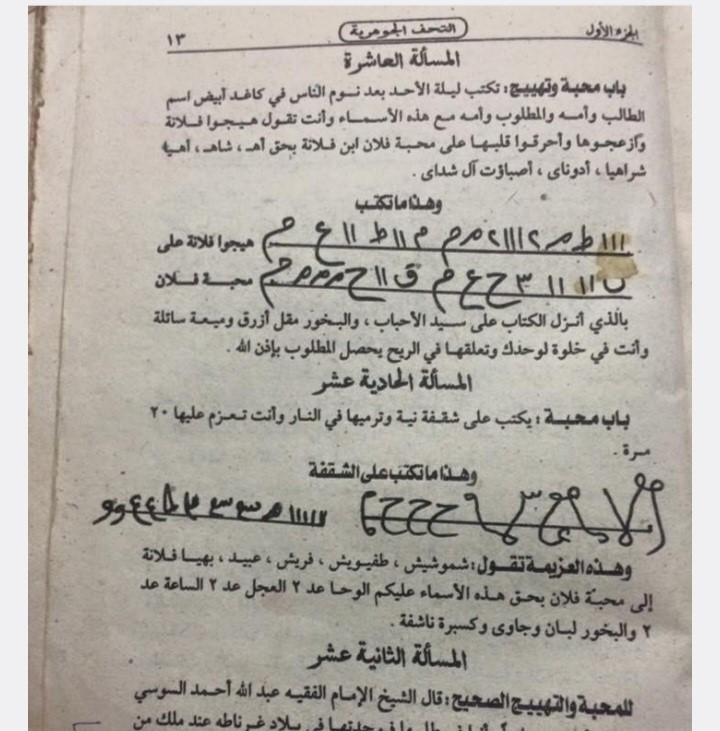 الجزء الأول
التحف الجوهرية
١٣
المسألة العاشرة
باب محبة وتهييج : تكتب ليلة الأحد بعد نوم الناس في كاغد أبيض اسم
الطالب وأمه والمطلوب وأمه مع هذه الأسماء وأنت تقول هيجوا فلانة
وأزعجوها وأحرقوا قلبها على محبة فلان ابن فلانة بحق أهـ ، شاهـ ، أهيا
شراهيا ، أدوناي ، أصباؤت آل شداي .
وهذا ما تكتب
هيجوا فلانة على
محبة فلان
بالذي أنزل الكتاب على سيد الأحباب ، والبخور مقل أزرق وميعة سائلة
وأنت في خلوة لوحدك وتعلقها في الريح يحصل المطلوب بإذن الله .
المسألة الحادية عشر
باب محبة : يكتب على شقفة نية وترميها في النار وأنت تعزم عليها ٢٠
مرة .
وهذا ما تكتب على الشقفة
وهذه العزيمة تقول : شموشيش ، طفيويش ، فريش ، عبيد ، بهيا فلانة
إلى محبة فلان بحق هذه الأسماء عليكم الوحا عد ٢ العجل عد ٢ الساعة عد
٢ والبخور لبان وجاوى وكسبرة ناشفة .
المسألة الثانية عشر
للمحبة والتهييج الصحيح : قال الشيخ الإمام الفقيه عبد الله أحمد السوسي
في بلاد غرناطه عند ملك من